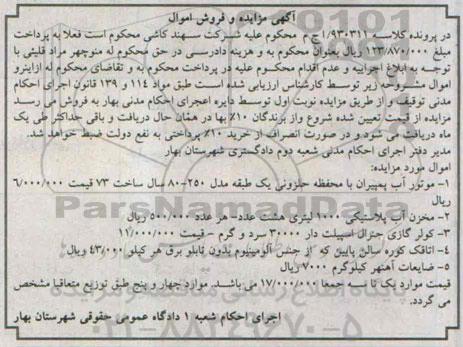 آگهی مزایده و فروش اموال
در پرونده کلاسه ۹۳۰۳۱۱/ ۱ج م محکوم علیه شرکت سهند کاشی محکوم است فعلا به پرداخت
مبلغ ۱۲۳/۸۷۰/۰۰۰ ریال بعنوان محکوم به و هزینه دادرسی در حق محکوم له منوچهر مراد قلیئی با
توجه به ابلاغ اجراییه و عدم اقدام محکوم علیه در پرداخت محکوم به و تقاضای محکوم له ازاینرو
اموال مشروحه زیر توسط کارشناس ارزیابی شده است طبق مواد ۱۱۴ و ۱۳۹ قانون اجرای احکام
مدنی توقیف و از طریق مزایده نوبت اول توسط دایره اعجرای احکام مدنی بهار به فروش می رسد
مزایده از قیمت تعیین شده شروع واز برندگان ۱۰٪ بها در همان حال دریافت و باقی حداکثر طی یک
ماه دریافت می شود و در صورت انصراف از خرید ۱۰٪ پرداختی به نفع دولت ضبط خواهد شد.
مدیر دفتر اجرای احکام مدنی شعبه دوم دادگستری شهرستان بهار
اموال مورد مزایده:
۱- موتور آب پمپیران با محفظه حلزونی یک طبقه مدل ۲۵۰-۸۰ سال ساخت ۷۳ قیمت ۶/۰۰۰/۰۰۰
ریال
۲- مخزن آب پلاستیکی ۱۰۰۰ لیتری هشت عدد- هر عدد ۵۰۰/۰۰۰ ریال
۳- کولر گازی جنرال اسپیلت دار ۳۰۰۰۰ سرد و گرم - قیمت ۱۱/۰۰۰/۰۰۰
۴- اتاقک کوره سالن پایین که از جنس آلومینیوم بدون تابلو برق هر کیلو ۴۳/۰۰۰ ریال
۵- ضایعات آهنهر کیلوگرم ۷۰۰۰ ریال
قیمت موارد یک تا سه جمعا ۱۷/۰۰۰/۰۰۰ می باشد. موارد چهار و پنج طبق توزیع متعاقبا مشخص
می گردد.
اجرای احکام شعبه ۱ دادگاه عمومی حقوقی شهرستان بهار
ParsNamadData
۰۲۱-۸۸۳۴۹۶۷۰-۵